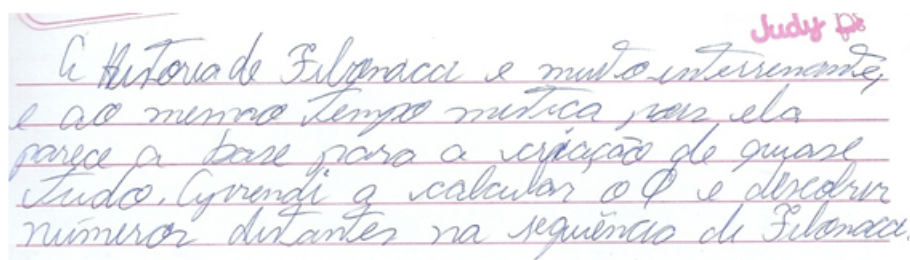 Judy Ds
A História de Fibonacci e muito interresante,
e ao mesmo tempo mistica pois ela
parece a base para a criação de quase
tudo. Aprendi a calcular o φ e descobrir
números distantes na sequência de Fibonacci.